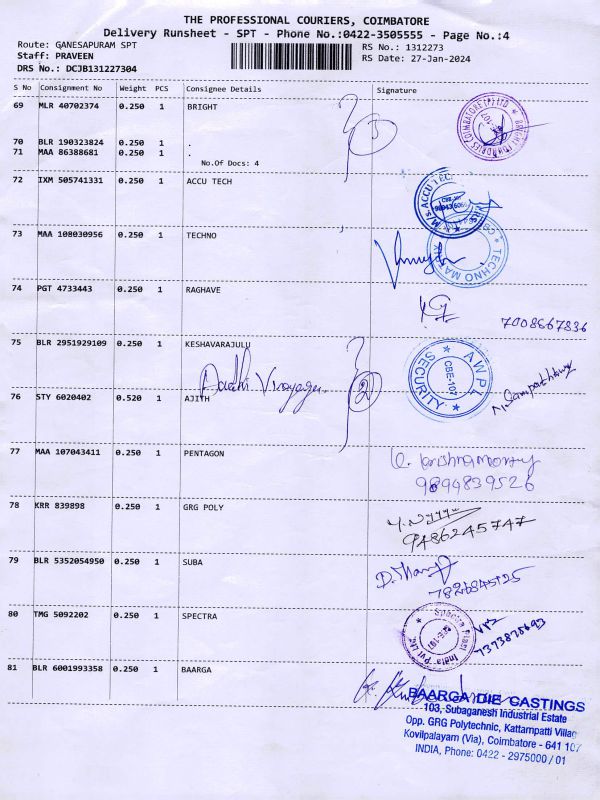 THE PROFESSIONAL COURIERS, COIMBATORE
Delivery Runsheet - SPT - Phone No.:0422-3505555 - Page No.:4
Route: GANESAPURAM SPT
RS No.: 1312273
Staff: PRAVEEN
RS Date: 27-Jan-2024
DRS No.: DCJB131227304
S No Consignment No Weight PCS Consignee Details Signature
69 MLR 40702374 0.250 1 BRIGHT
70 BLR 190323824 0.250 1 .
71 MAA 86388681 0.250 1 .
No.Of Docs: 4
3
72 IXM 505741331 0.250 1 ACCU TECH
M/s ACCU TEC
73 MAA 108030956 0.250 1 TECHNO
TECHNO
74 PGT 4733443 0.250 1 RAGHAVE
7008667836
75 BLR 2951929109 0.250 1 KESHAVARAJULU
AWPL
CBE-107
SECURITY
2
76 STY 6020402 0.520 1 AJITH
77 MAA 107043411 0.250 1 PENTAGON
9894839526
78 KRR 839898 0.250 1 GRG POLY
9486245747
79 BLR 5352054950 0.250 1 SUBA
80 TMG 5092202 0.250 1 SPECTRA
India Pvt Ltd.
7373878693
81 BLR 6001993358 0.250 1 BAARGA
BAARGA DIE CASTINGS
103, Subaganesh Industrial Estate
Opp. GRG Polytechnic, Kattampatti Villag
Kovilpalayam (Via), Coimbatore - 641 107
INDIA, Phone: 0422 - 2975000 / 01